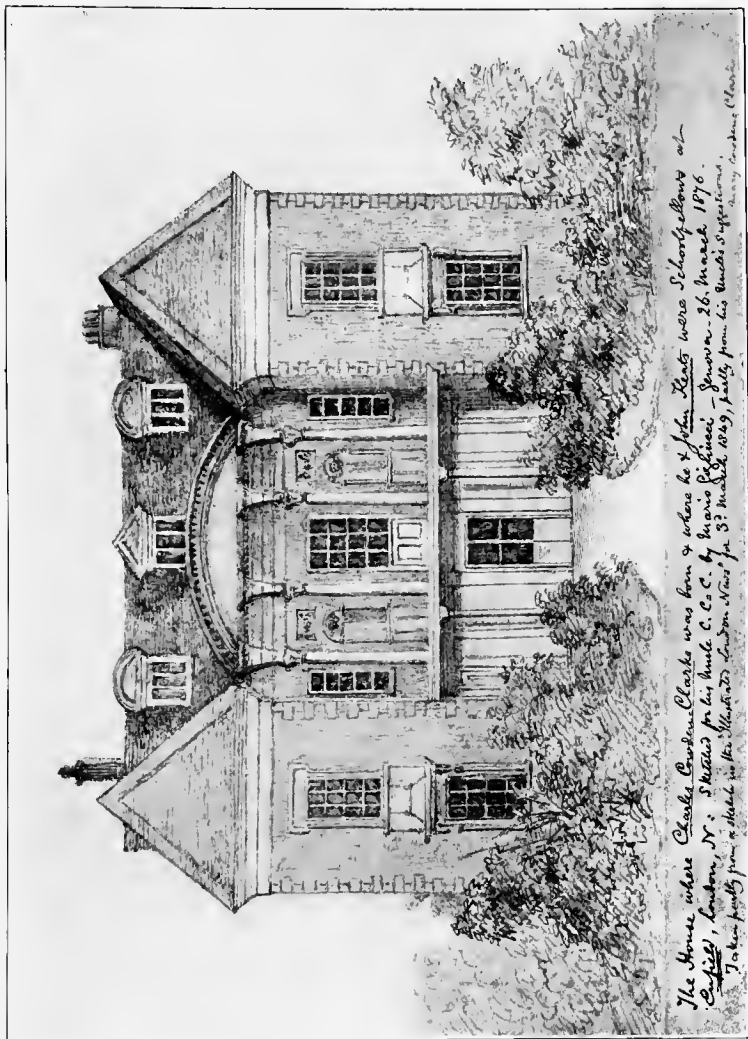 The House where Charles Cowden Clarke was born & where he & John Keats were Schoolfellows at
Enfield, London, N: Sketched for his Uncle C. C. C. by Mario Gigliucci - Genova - 26. March 1876 -
Taken partly from a sketch in the "Illustrated London News" for 3d. March 1849, partly from his Uncle's suggestions.
Mary Cowden Clarke